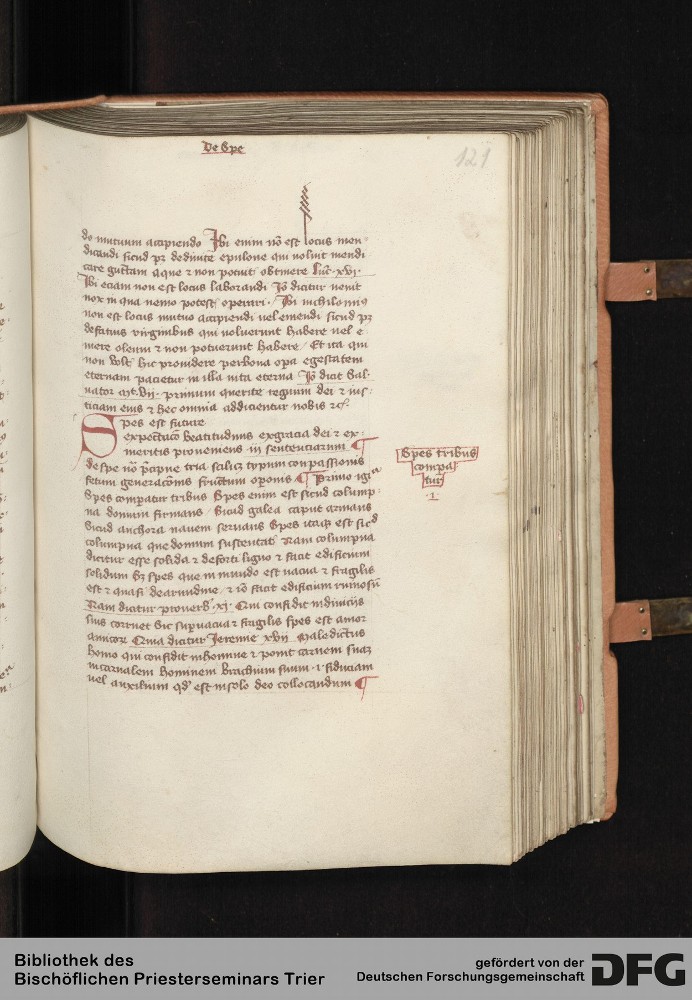 De Spe
121
do mutuum accipiendo Ibi enim nō est locus men
dicandi sicud pʒ de diuite epulone qui uoluit mendi
care guttam aque ⁊ non potuit obtinere Luc̄ · xvj ·
Ibi eciam non est locus laborandi Iō dicitur uenit
nox in qua nemo potest operari · Ibi nichilominꝰ
non est locus mutuo accipiendi uel emendi sicud pʒ
de fatuis virginibus qui uoluerunt habere uel e
mere oleum ⁊ non potuerunt habere / Et ita qui
non volt hic prouidere per bona opa egestatem
eternam pacietur in illa uita eterna Iō dicit Sal
uator mt̄ · vij · primum querite regnum dei ⁊ ius
ticiam eius ⁊ hec omnia addicientur nobis ⁊c̄
Spes est future
expectacō beatitudinis ex gracia dei ⁊ ex
meritis proueniens in sentenciarum ¶
de spe nō p̄cipue tria scilicʒ typum conpassionis
fetum generacōnis fructum oponis ¶ Primo igiᵗ
Spes comparatur tribus Spes enim est sicud colump
na domum firmans / Sicud galea caput armans
Sicud anchora nauem seruans Spes itaqʒ est sicᵈ
columpna que domum sustentat Nam columpna
dicitur esse solida ⁊ de forti ligno ⁊ facit edificium
solidum Sʒ spes que in mundo est uacua ⁊ fragilis
est ⁊ quasi de arundine / ⁊ iō facit edificium ruinosū
Nam dicitur prouerb̄ · xj · Qui confidit in diuicijs
suis corruet Sic supuacua ⁊ fragilis spes est amor
amicoꝝ Quia dicitur Jeremie xvij Maledictus
homo qui confidit in homine ⁊ ponit carnem suaʒ
in carnalem hominem brachium suum · i · fiduciam
uel auxilium qd̄ est in solo deo collocandum ¶
Spes tribus
compa
tur
· 1 ·
Bibliothek des
Bischöflichen Priesterseminars Trier
gefördert von der
Deutschen Forschungsgemeinschaft
DFG